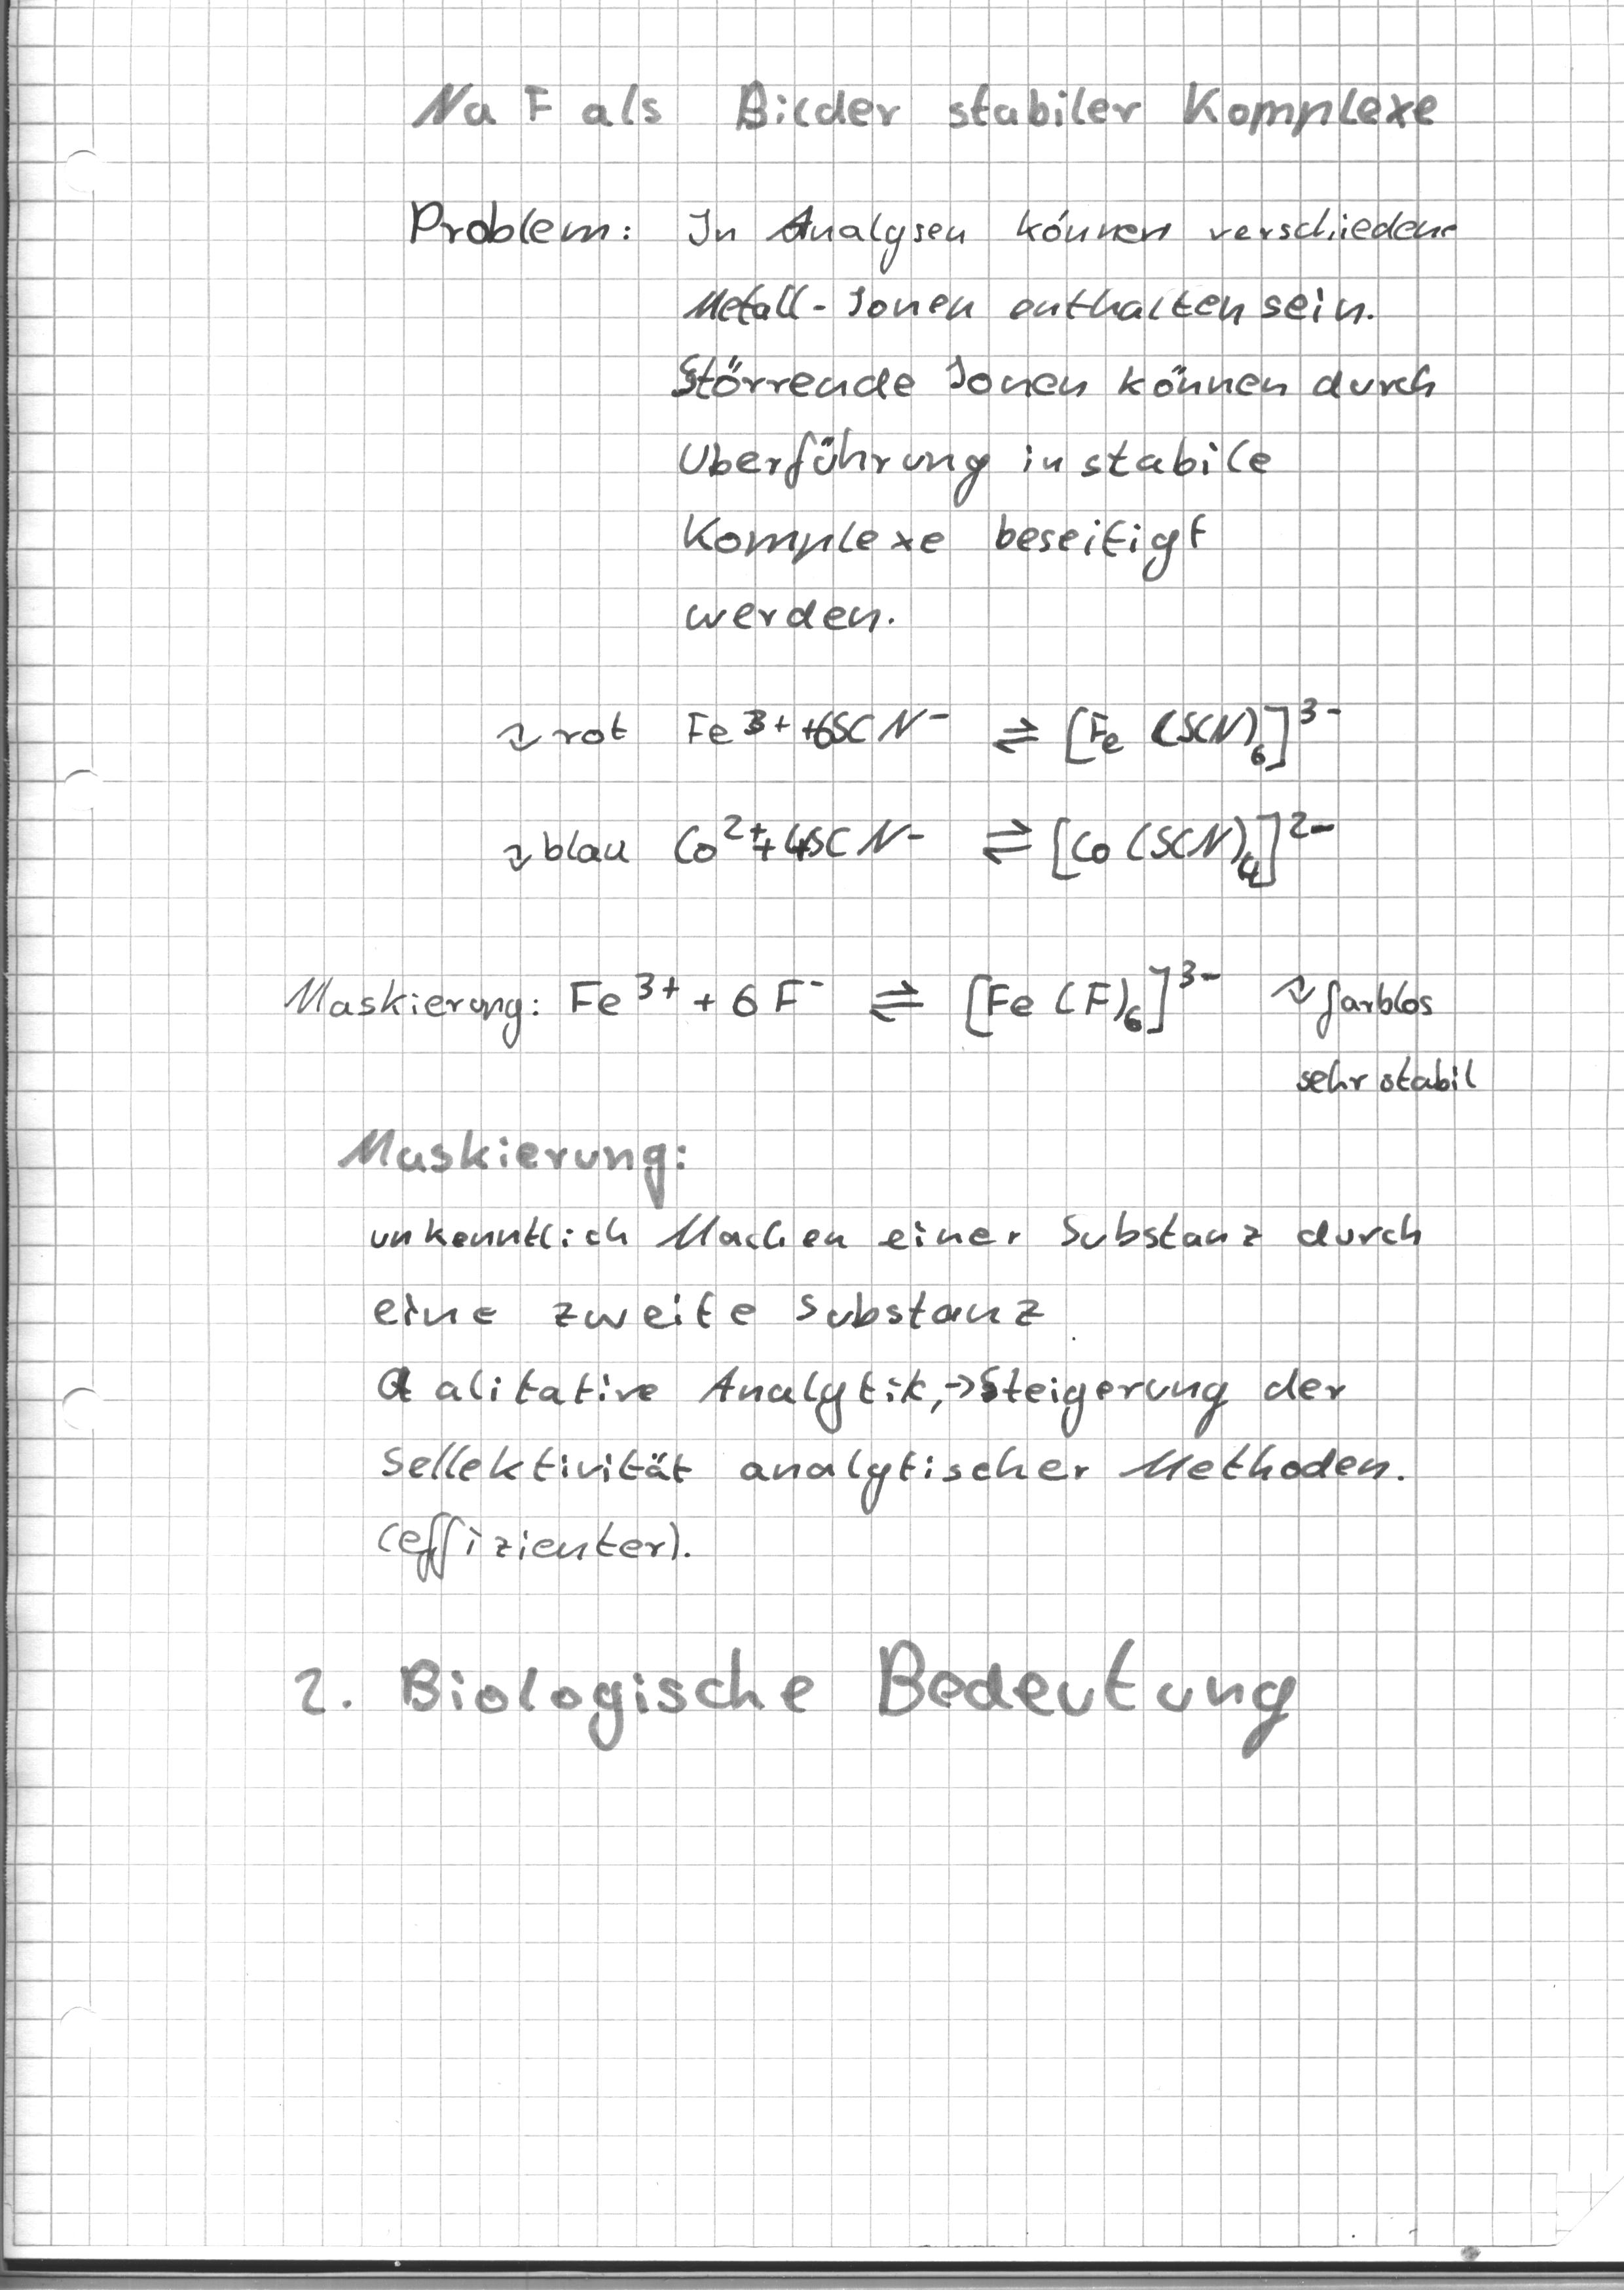 NaF als Bilder stabiler Komplexe
Problem: In Analysen können verschiedene
Metall-Ionen enthalten sein.
Störrende Ionen können durch
Uberführung in stabile
Komplexe beseitigt
werden.
rot Fe³⁺+6SCN⁻ ⇌ [Fe(SCN)₆]³⁻
blau Co²⁺+4SCN⁻ ⇌ [Co(SCN)₄]²⁻
Maskierung: Fe³⁺ + 6F⁻ ⇌ [Fe(F)₆]³⁻ farblos
sehr stabil
Maskierung:
unkenntlich Machen einer Substanz durch
eine zweite Substanz
Qalitative Analytik,→Steigerung der
Sellektivität analytischer Methoden.
(effizienter).
2. Biologische Bedeutung